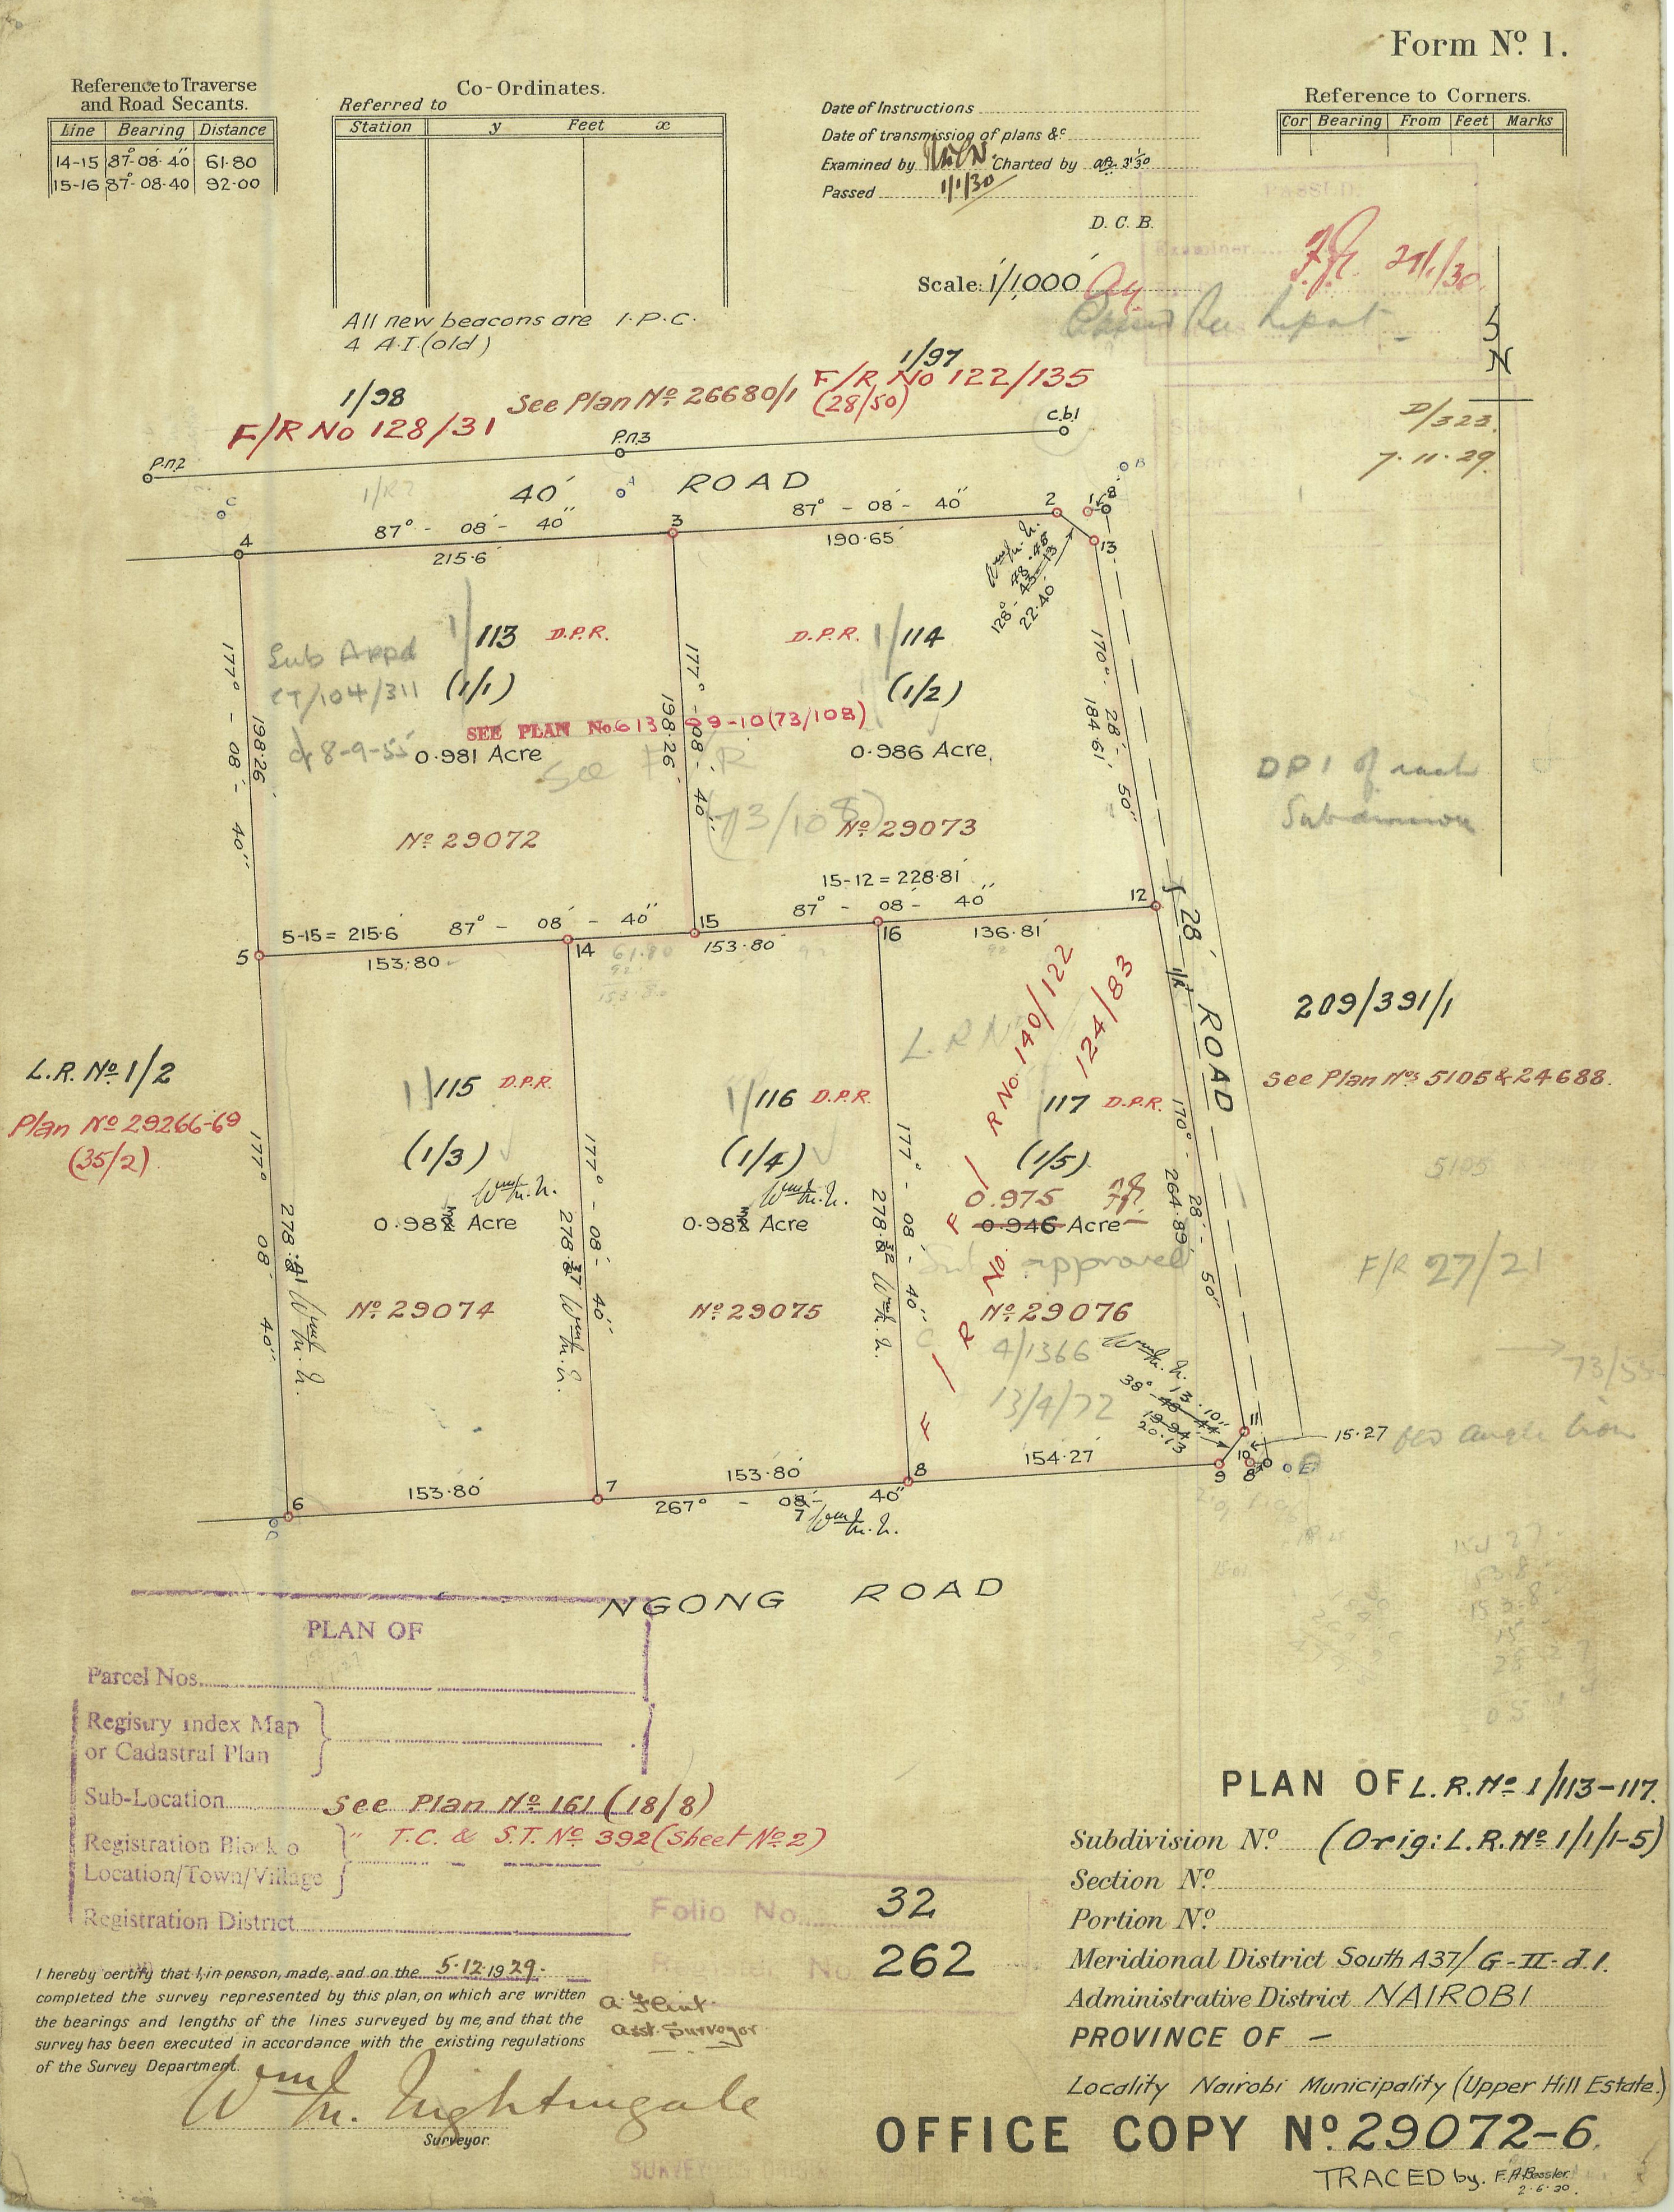 Form Nº 1.
Reference to Traverse
and Road Secants.
Line Bearing Distance
14-15 87°-08'-40" 61·80
15-16 87°-08-40 92·00
Co-Ordinates.
Referred to
Station y Feet x
All new beacons are I.P.C.
4 A.I.(old)
Date of Instructions
Date of transmission of plans &c
Examined by Charted by
Passed 1/1/30
D. C. B.
Scale: 1/1,000
Reference to Corners.
Cor Bearing From Feet Marks
PASSED
Examiner
29/1/30
N
D/323.
7·11·29.
1/98
F/R No 128/31
See Plan Nº 26680/1
1/97
F/R No 122/135
(28/50)
P.n.2
P.n.3
c.b.1
C
A
B
40' ROAD
4
87° - 08' - 40"
215·6
3
87° - 08' - 40"
190·65
2
1
13
22·40
1/113 D.P.R.
(1/1)
Sub Appd
CT/104/311
8-9-55
0·981 Acre
Nº 29072
177° - 08' - 40"
198·26
D.P.R. 1/114
(1/2)
0·986 Acre.
Nº 29073
SEE PLAN No. 613 09-10(73/108)
See F/R
(73/108)
177° - 08' - 40"
198·26
170° - 28' - 50"
184·61
DP1 of each
Subdivision
5
5-15 = 215·6
87° - 08' - 40"
153·80
14
15
15-12 = 228·81
87° - 08' - 40"
153·80
16
136·81
12
61·80
92
153·80
28' ROAD
209/391/1
See Plan Nºs 5105 & 24688.
5105
F/R 27/21
L.R. Nº 1/2
Plan Nº 29266-69
(35/2)
1/115 D.P.R.
(1/3)
0·98 Acre
Nº 29074
177° - 08' - 40"
1/116 D.P.R.
(1/4)
0·98 Acre
Nº 29075
177° - 08' - 40"
L.R Nº
117 D.P.R.
(1/5)
0.975
0·946 Acre
approved
Nº 29076
4/1366
13/4/72
F/R No. 140/122
F/R No. 124/83
177° - 08' - 40"
170° - 28' - 50"
264·89
20·13
11
15·27
angle iron
6
153·80
7
153·80
267° - 08' - 40"
8
154·27
9
10
NGONG ROAD
PLAN OF
Parcel Nos.
Registry Index Map
or Cadastral Plan
Sub-Location
See Plan Nº 161 (18/8)
" T.C. & S.T. Nº 392 (Sheet Nº 2)
Registration Block o
Location/Town/Village
Registration District
Folio No. 32
Register No. 262
I hereby certify that I, in person, made, and on the 5·12·1929·
completed the survey represented by this plan, on which are written
the bearings and lengths of the lines surveyed by me, and that the
survey has been executed in accordance with the existing regulations
of the Survey Department.
A. Flint.
Asst. Surveyor
Wm. M. Nightingale
Surveyor.
PLAN OF L.R. Nº 1/113-117.
Subdivision Nº (Orig: L.R. Nº 1/1/1-5)
Section Nº
Portion Nº
Meridional District South A37/G-II-d.1.
Administrative District NAIROBI
PROVINCE OF —
Locality Nairobi Municipality (Upper Hill Estate.)
OFFICE COPY Nº 29072-6.
TRACED by. F.A. Bessler
2·6·30.